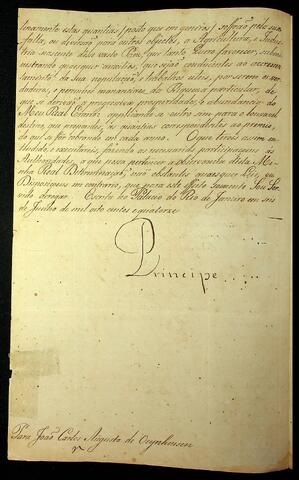 tinamente estas quantias (posto que em generos) sejão pelo seu
falte, ou divirtão para outros objectos, a Agricultura, e Indus
tria nascente desse vasto Paiz, que tanto Quero favorecer, subme
nistrando quaesquer auxilios, que sejão conducentes ao accrescen
tamento da sua população, e trabalhos uteis, por serem os ver
dadeiros, e perennes mananciaes da Riqueza particular, de
que se deriva a progressiva prosperidade, e abundancia do
Meu Real Erario: applicando-se outro sim para o louvavel
destino, que premeditais, as quantias correspondentes ao premio,
do que se for retirando em cada anno. O que tereis assim en
tendido, e executareis, fazendo as necessarias participaçoens ás
Authoridades, a que possa pertencer a observancia desta Mi
nha Real Determinação, não obstantes quaesquer Leis, ou
Disposiçoens em contrario, que para este effeito somente Sou Ser
vido derogar. Escrita no Palacio do Rio de Janeiro em seis
de Junho de mil oito centos e quatorze
Principe
Para João Carlos Augusto de Oeynhausen